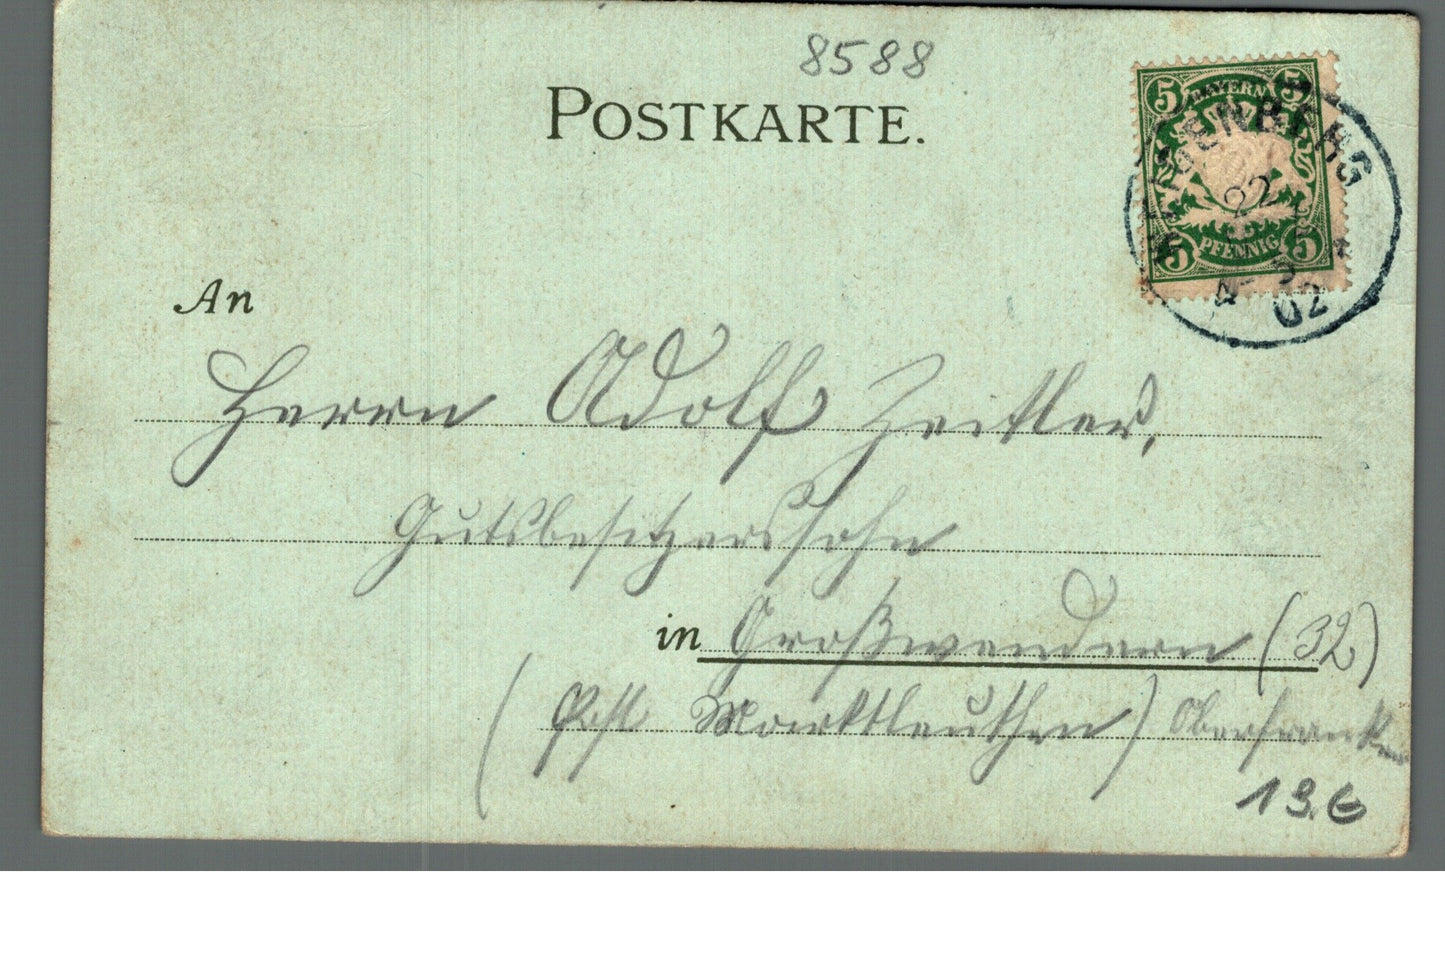 8588
POSTKARTE.
5 BAYERN 5
22
5 PFENNIG 5
4 02
An
Herrn Adolf Zeitler,
Gutsbesitzerssohn
in Großwendern (32)
(Post Marktleuthen) Oberfranken
13.€